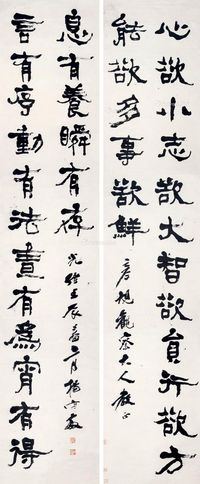 心欲小志欲大智欲員行欲方
能欲多事欲鮮
觀察大人教正
言有序動有法晝有為宵有得
息有養瞬有存
光緒壬辰春二月楊守敬